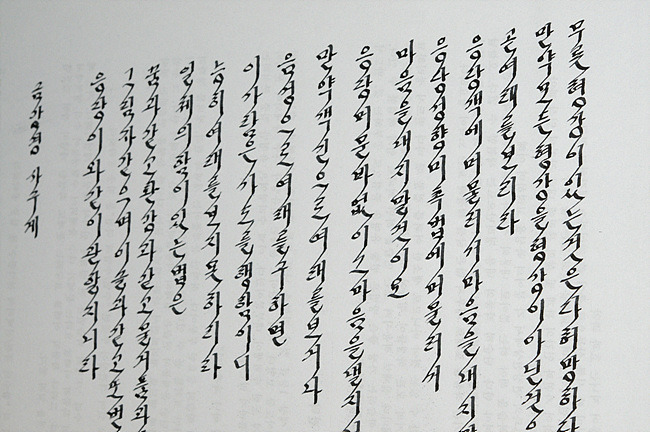 무릇형상이있는것은다허망하다
만약모든형상을형상이아닌것으
곧여래를보리라
응당색에머물러서마음을내지말
응당성향미촉법에머물러서
마음을내지말것이요
응당머문바없이그마음을낼지니
만약색신으로여래를보거나
음성으로여래를구하면
이사람은사도를행함이니
능히여래를보지못하리라
일체의함이있는법은
꿈과같고환상과같고물거품과
그림자같으며이슬과같고또번
응당이와같이관할지니라
금강경 사구게